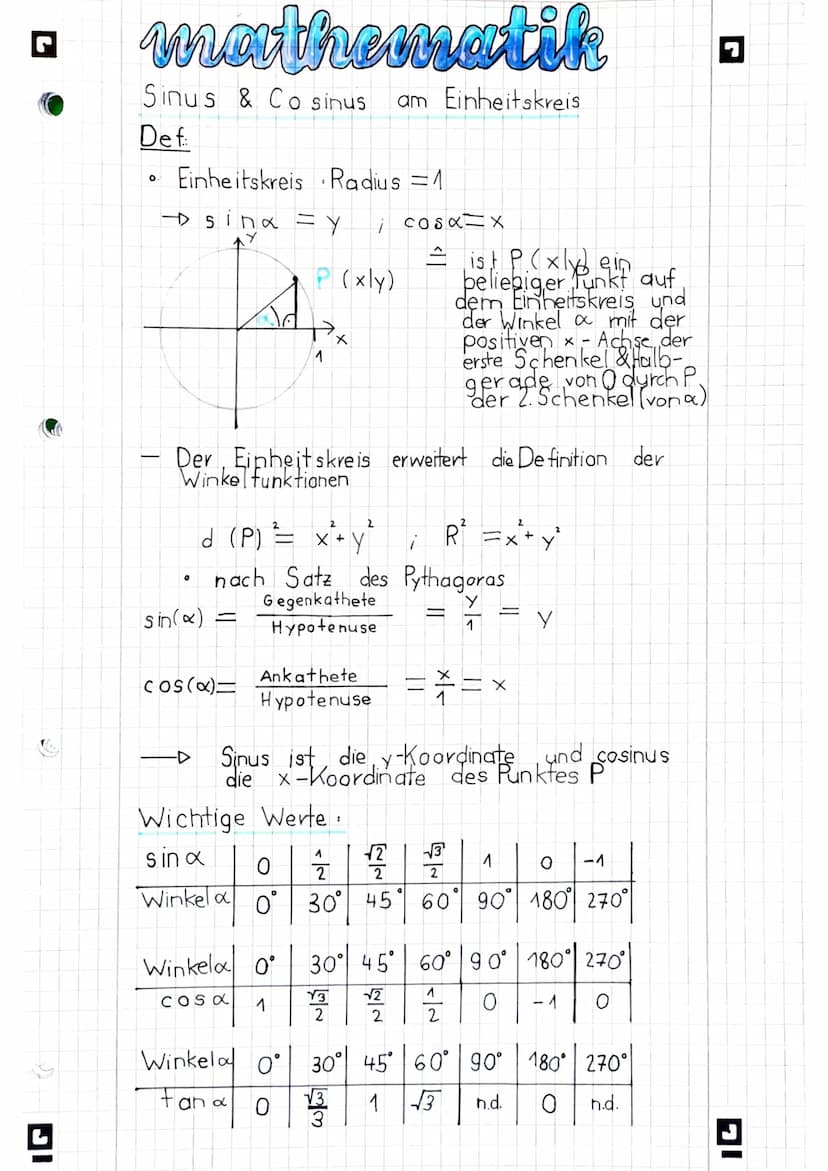 mathematik
Sinus & Cosinus am Einheitskreis
Def:
• Einheitskreis · Radius = 1
→ sinα = y ; cosα = x
y
P (x|y)
α
x
1
≙ ist P(x|y) ein
beliebiger Punkt auf
dem Einheitskreis und
der Winkel α mit der
positiven x-Achse der
erste Schenkel & Halb-
gerade von 0 durch P
der 2. Schenkel (von α)
– Der Einheitskreis erweitert die Definition der
Winkelfunktionen
d (P)² = x² + y² ; R² = x² + y²
• nach Satz des Pythagoras
sin(α) = Gegenkathete / Hypotenuse = y/1 = y
cos(α) = Ankathete / Hypotenuse = x/1 = x
→ Sinus ist die y-Koordinate und cosinus
die x-Koordinate des Punktes P
Wichtige Werte:
sin α | 0 | 1/2 | √2/2 | √3/2 | 1 | 0 | -1
Winkel α | 0° | 30° | 45° | 60° | 90° | 180° | 270°
Winkel α | 0° | 30° | 45° | 60° | 90° | 180° | 270°
cos α | 1 | √3/2 | √2/2 | 1/2 | 0 | -1 | 0
Winkel α | 0° | 30° | 45° | 60° | 90° | 180° | 270°
tan α | 0 | √3/3 | 1 | √3 | n.d. | 0 | n.d.